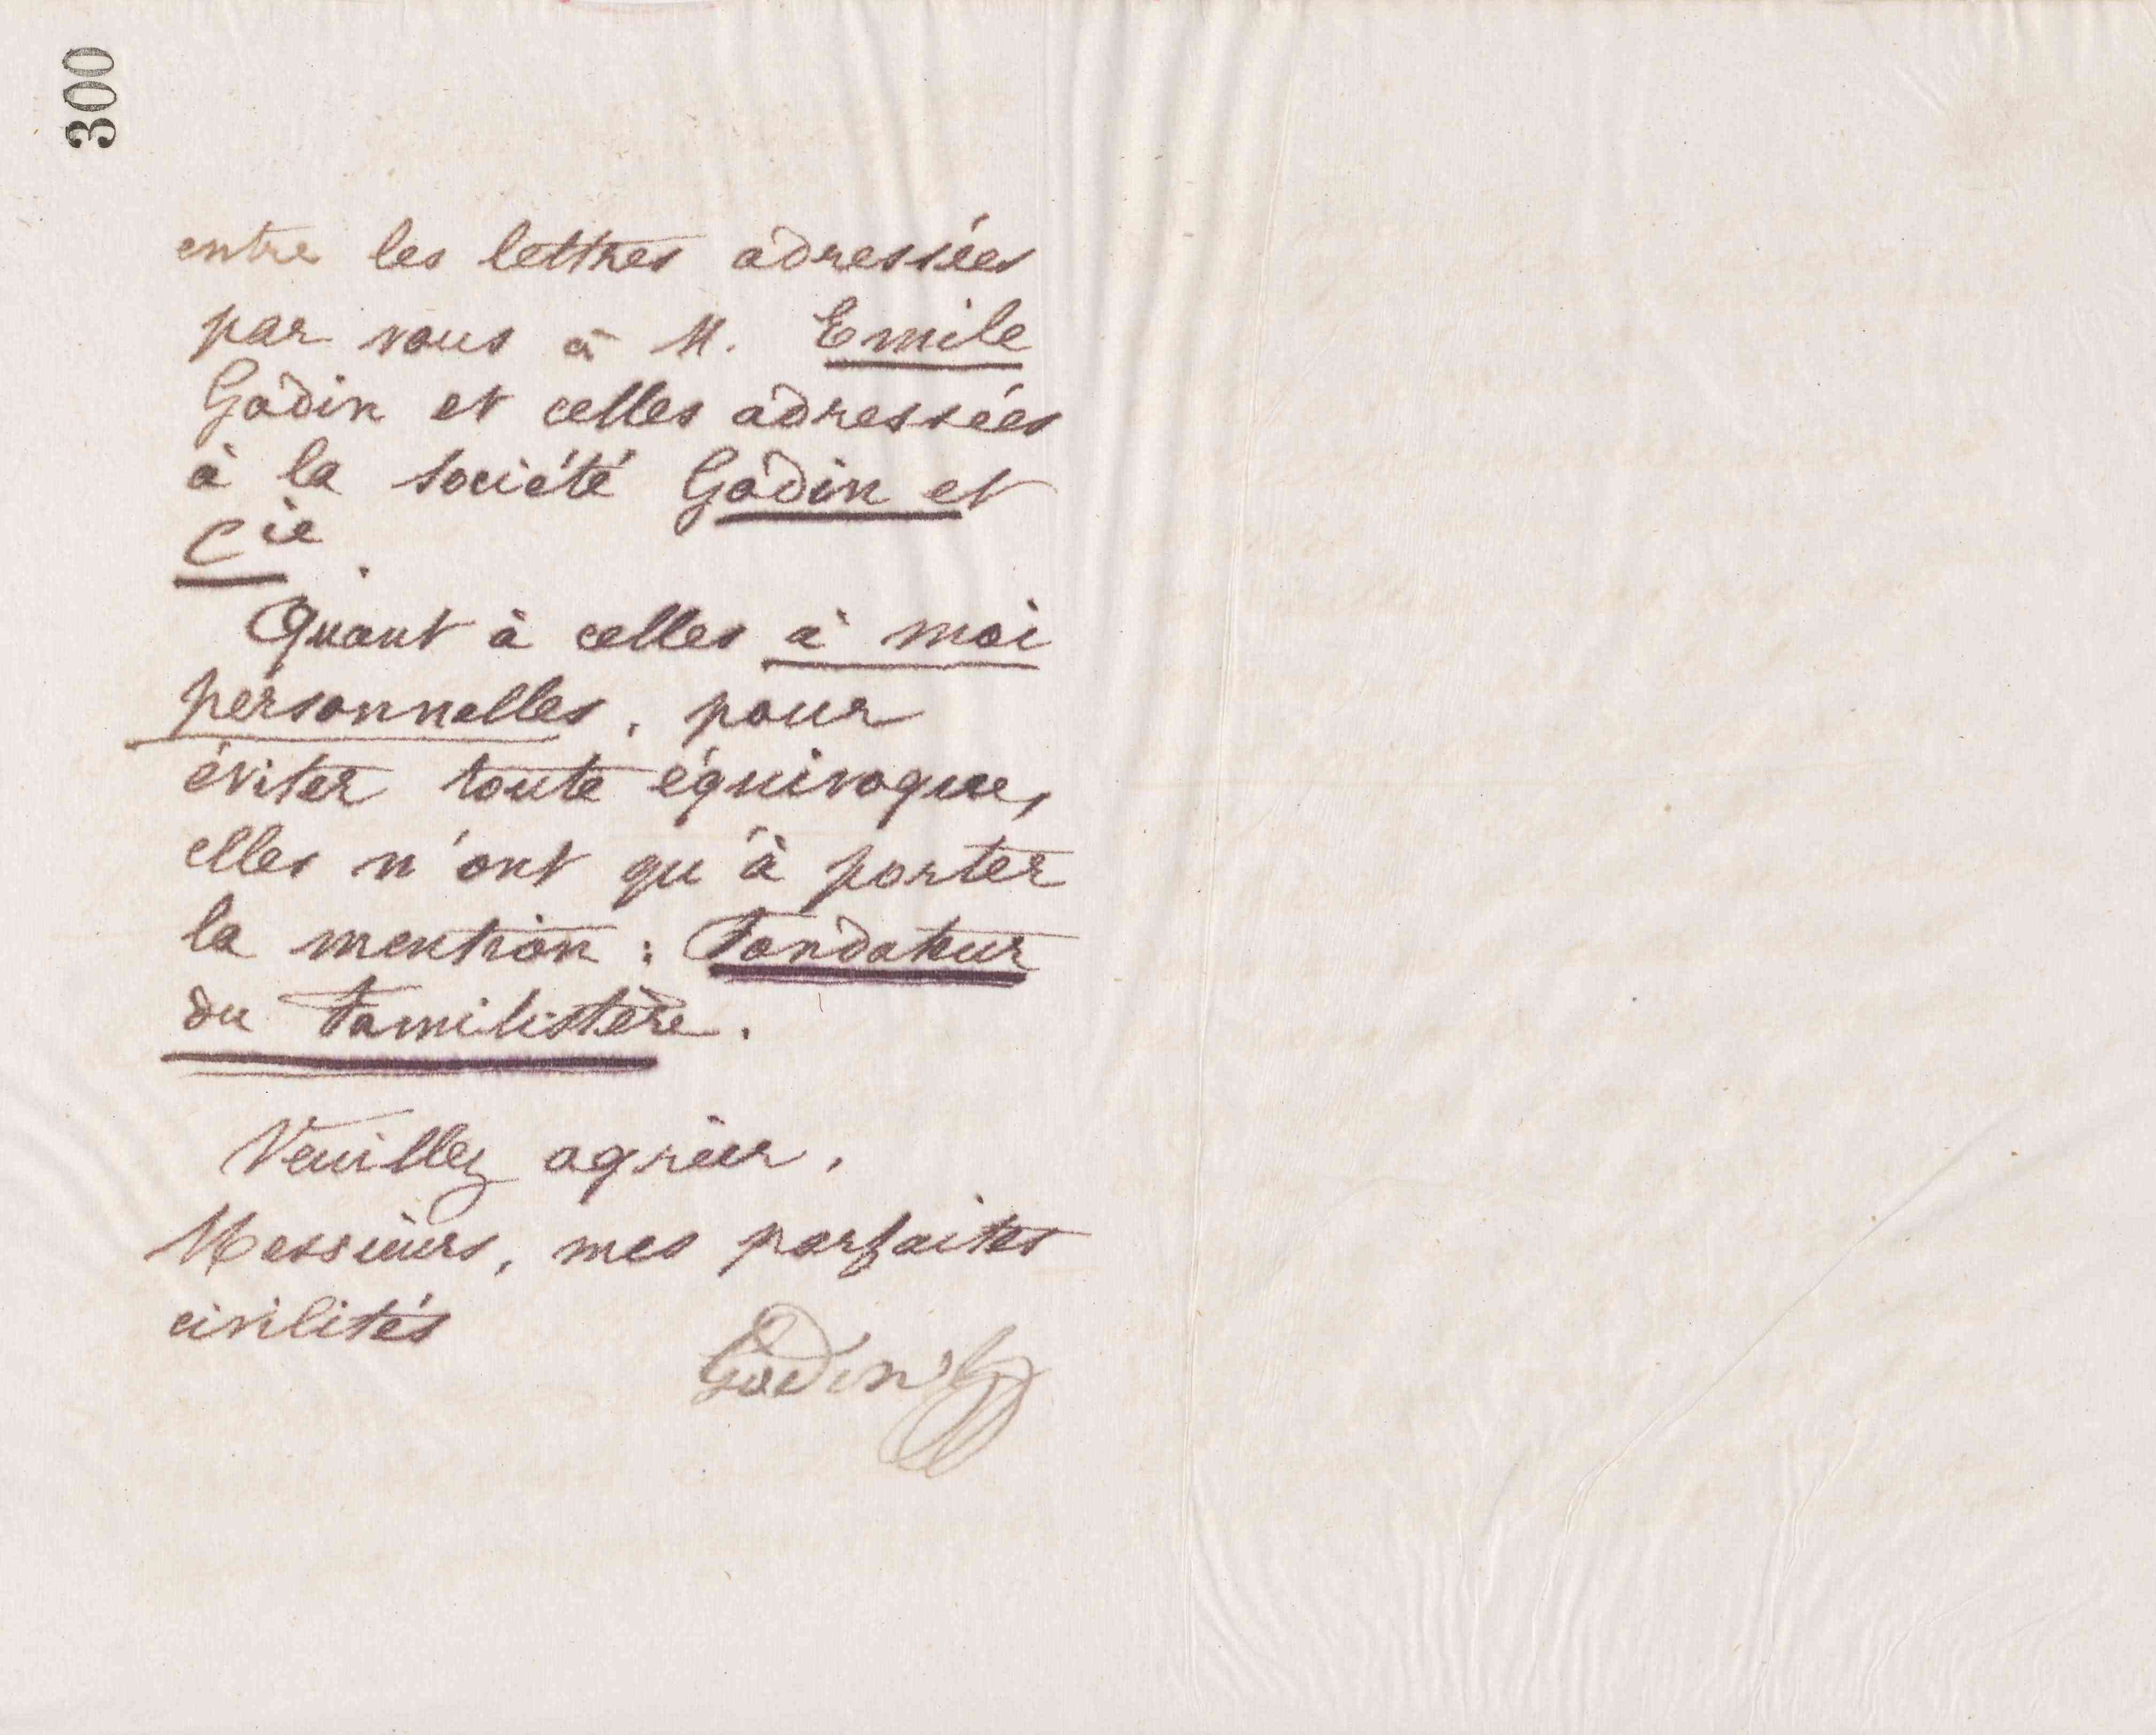 300
entre les lettres adressées
par vous à M. Emile
Godin et celles adressées
à la société Godin et
Cie.
Quant à celles à moi
personnelles, pour
éviter toute équivoque,
elles n'ont qu'à porter
la mention : Fondateur
du Familistère.
Veuillez agréer,
Messieurs, mes parfaites
civilités
Godin